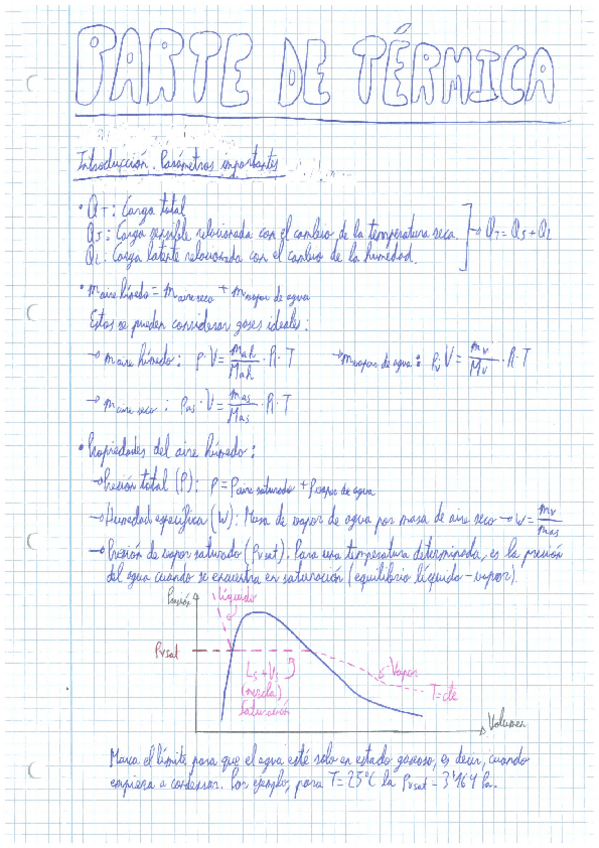 PARTE DE TÉRMICA
Introducción. Parámetros importantes
• QT: Carga total
QS: Carga sensible relacionada con el cambio de la temperatura seca. → QT = QS + QL
QL: Carga latente relacionada con el cambio de la humedad.
• m aire húmedo = m aire seco + m vapor de agua
Estos se pueden considerar gases ideales:
→ m aire húmedo: P·V = mah/Mah · R·T → m vapor de agua: Pv·V = mv/Mv · R·T
→ m aire seco: Pas·V = mas/Mas · R·T
• Propiedades del aire húmedo:
→ Presión total (P): P = P aire saturado + P vapor de agua
→ Humedad específica (W): Masa de vapor de agua por masa de aire seco → W = mv/mas
→ Presión de vapor saturado (Pvsat). Para una temperatura determinada, es la presión
del agua cuando se encuentra en saturación (equilibrio líquido-vapor).
Presión
líquido
Pvsat
LS + VS
(mezcla)
Saturación
Vapor
T=cte
Volumen
Marca el límite para que el agua esté solo en estado gaseoso, es decir, cuando
empieza a condensar. Por ejemplo, para T=25°C la Pvsat = 3'164 Pa.